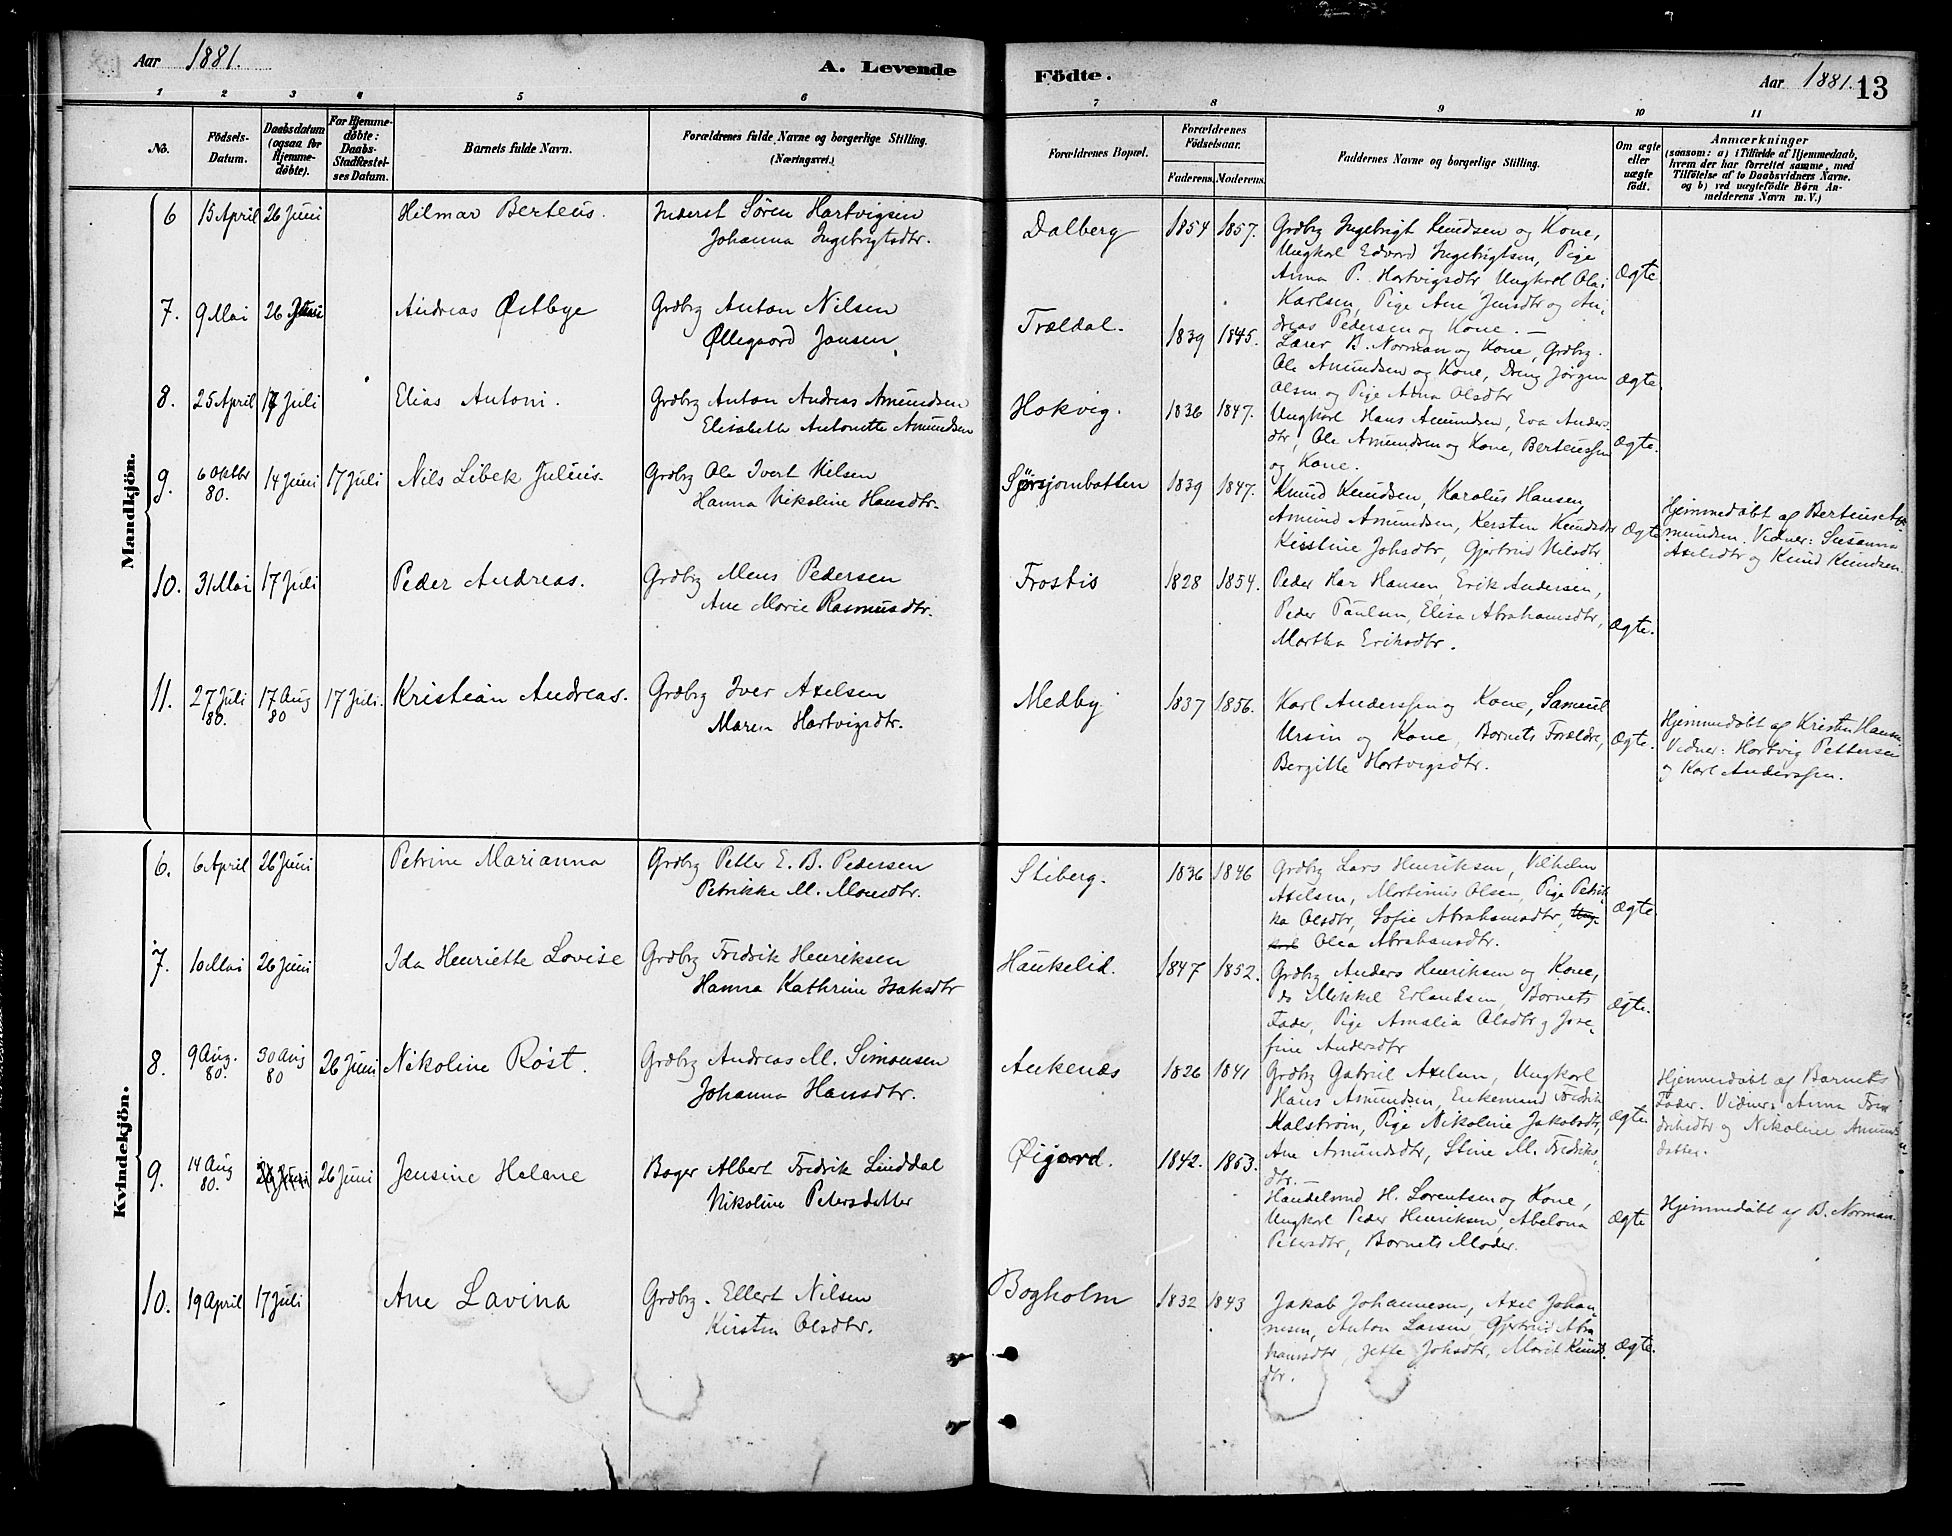 Aar 1881.
A. Levende
Födte.
Aar 1881. 13
1 2 3 4 5 6
7 8 9 10 11
No.
Födsels-
Datum.
Daabsdatum
(ogsaa for
Hjemme-
døbte).
For Hjemme-
døbte:
Daabs-
Stadfæstel-
ses Datum.
Barnets fulde Navn.
Forældrenes fulde Navne og borgerlige Stilling.
(Næringsvei.)
Forældrenes Bopæl.
Forældrenes
Födselsaar.
Faderens. Moderens.
Faddernes Navne og borgerlige Stilling.
Om ægte
eller
uægte
født.
Anmærkninger
(saasom: a) i Tilfælde af Hjemmedaab,
hvem der har forrettet samme, med
Tilföielse af to Daabsvidners Navne.
og b) ved uægtefödte Börn An-
melderens Navn m. V.)
Mandkjön.
6 15 April 26 Juni Hilmar Berteus. Inderst Sören Hartvigsen
Johanna Ingebrigtsdtr.
Dalberg 1854 1857. Grdbrg Ingebrigt Knudsen og Kone,
Ungkarl Edvard Ingebrigtsen, Pige
Anna P. Hartvigsdtr Ungkarl Ola
Karlsen, Pige Ane Jensdtr og An-
dreas Pedersen og Kone. –
Ægte
7. 9 Mai 26 Juni Andreas Østbye Grdbrg Anton Nilsen
Øllegaard Jansen
Trældal. 1839 1845.
Lærer B. Norman og Kone, Grdbrg.
Ole Amundsen og Kone, Dreng Jørgen
Olsen og Pige Anna Olsdtr
Ægte
8. 25 April 17 Juli Elias Antoni. Grdbrg Anton Andreas Amundsen
Elisabeth Antonette Amundsen
Hokvig. 1836 1847. Ungkarl Hans Amundsen, Eva Anders
dtr, Ole Amundsen og Kone, Berteussen
og Kone.
Ægte.
9. 6 Oktbr 80. 14 Juni 17 Juli Nils Libek Julius. Grdbrg Ole Ivert Nilsen
Hanna Nikoline Hansdtr.
Sørsjombotten 1839 1847. Knud Knudsen, Karolus Hansen,
Amund Amundsen, Kersten Knudsdtr
Kirstine Johsdtr, Gjertrud Nilsdtr
Ægte
Hjemmedøbt af Berteus A-
mundsen. Vidner: Susanna
Axelsdtr og Knud Knudsen.
10. 31 Mai 17 Juli Peder Andreas. Grdbrg Mons Pedersen
Ane Marie Rasmusdtr.
Frostis 1828 1854. Peder Kar Hansen, Erik Andersen,
Peder Paulsen, Elisa Abrahamsdtr,
Martha Eriksdtr.
Ægte.
11. 27 Juli 80. 17 Aug 80 17 Juli. Kristian Andreas. Grdbrg Iver Axelsen
Maren Hartvigsdtr.
Medby 1837 1856. Karl Anderssen og Kone, Samuel
Ursin og Kone, Barnets Forældre,
Bergitte Hartvigsdtr.
Ægte.
Hjemmedøbt af Kristen Hansen
Vidner: Hartvig Pettersen
og Karl Anderssen.
Kvindekjön.
6. 6 April 26 Juni Petrine Marianna Grdbrg Petter E. B. Pedersen
Petrikke M. Monsdtr.
Stiberg. 1836 1846 Grdbrg Lars Henriksen, Vilhelm
Axelsen, Mortinus Olsen, Pige Petrik
ka Olsdtr, Sofie Abrahamsdtr, Ung-
karl Olea Abrahamsdtr.
Ægte.
7. 10 Mai 26 Juni Ida Henriette Lovise Grdbrg Fredrik Henriksen
Hanna Kathrine Isaksdtr
Haukelid. 1847 1852. Grdbrg Anders Henriksen og Kone,
do Mikkel Erlandsen, Barnets
Fader, Pige Amalia Olsdtr og Jose-
fine Andersdtr
Ægte.
8. 9 Aug. 80. 30 Aug 80 26 Juni Nikoline Røst. Grdbrg Andreas M. Simonsen
Johanna Hansdtr.
Ankenæs 1826 1841 Grdbrg Gabriel Axelsen, Ungkarl
Hans Asmundsen, Enkemand Fredrik
Malstrøm, Pige Nikoline Jakobsdtr,
Ane Amundsdtr, Stine M. Fredriks-
dtr. –
Ægte.
Hjemmedøbt af Barnets
Fader. Vidner: Anna Fre
driksdtr og Nikoline Amunds
datter.
9. 14 Aug 80. 26 Juni 26 Juni Jensine Helene Bager Albert Fredrik Linddal
Nikoline Petersdatter
Øigard. 1842. 1853.
Handelsmd H. Lorentsen og Kone,
Ungkarl Peder Henriksen, Abelona
Petersdtr, Barnets Moder.
Ægte
Hjemmedøbt af B. Norman.
10. 19 April 17 Juli Ane Lavina Grdbrg. Ellert Nilsen
Kirsten Olsdtr.
Bogholm 1832 1843 Jakob Johannesen, Axel Johan-
nesen, Anton Larsen, Gjertrud Abra
hamsdtr, Jette Johsdtr, Marit Knuds.
dtr.
Ægte.